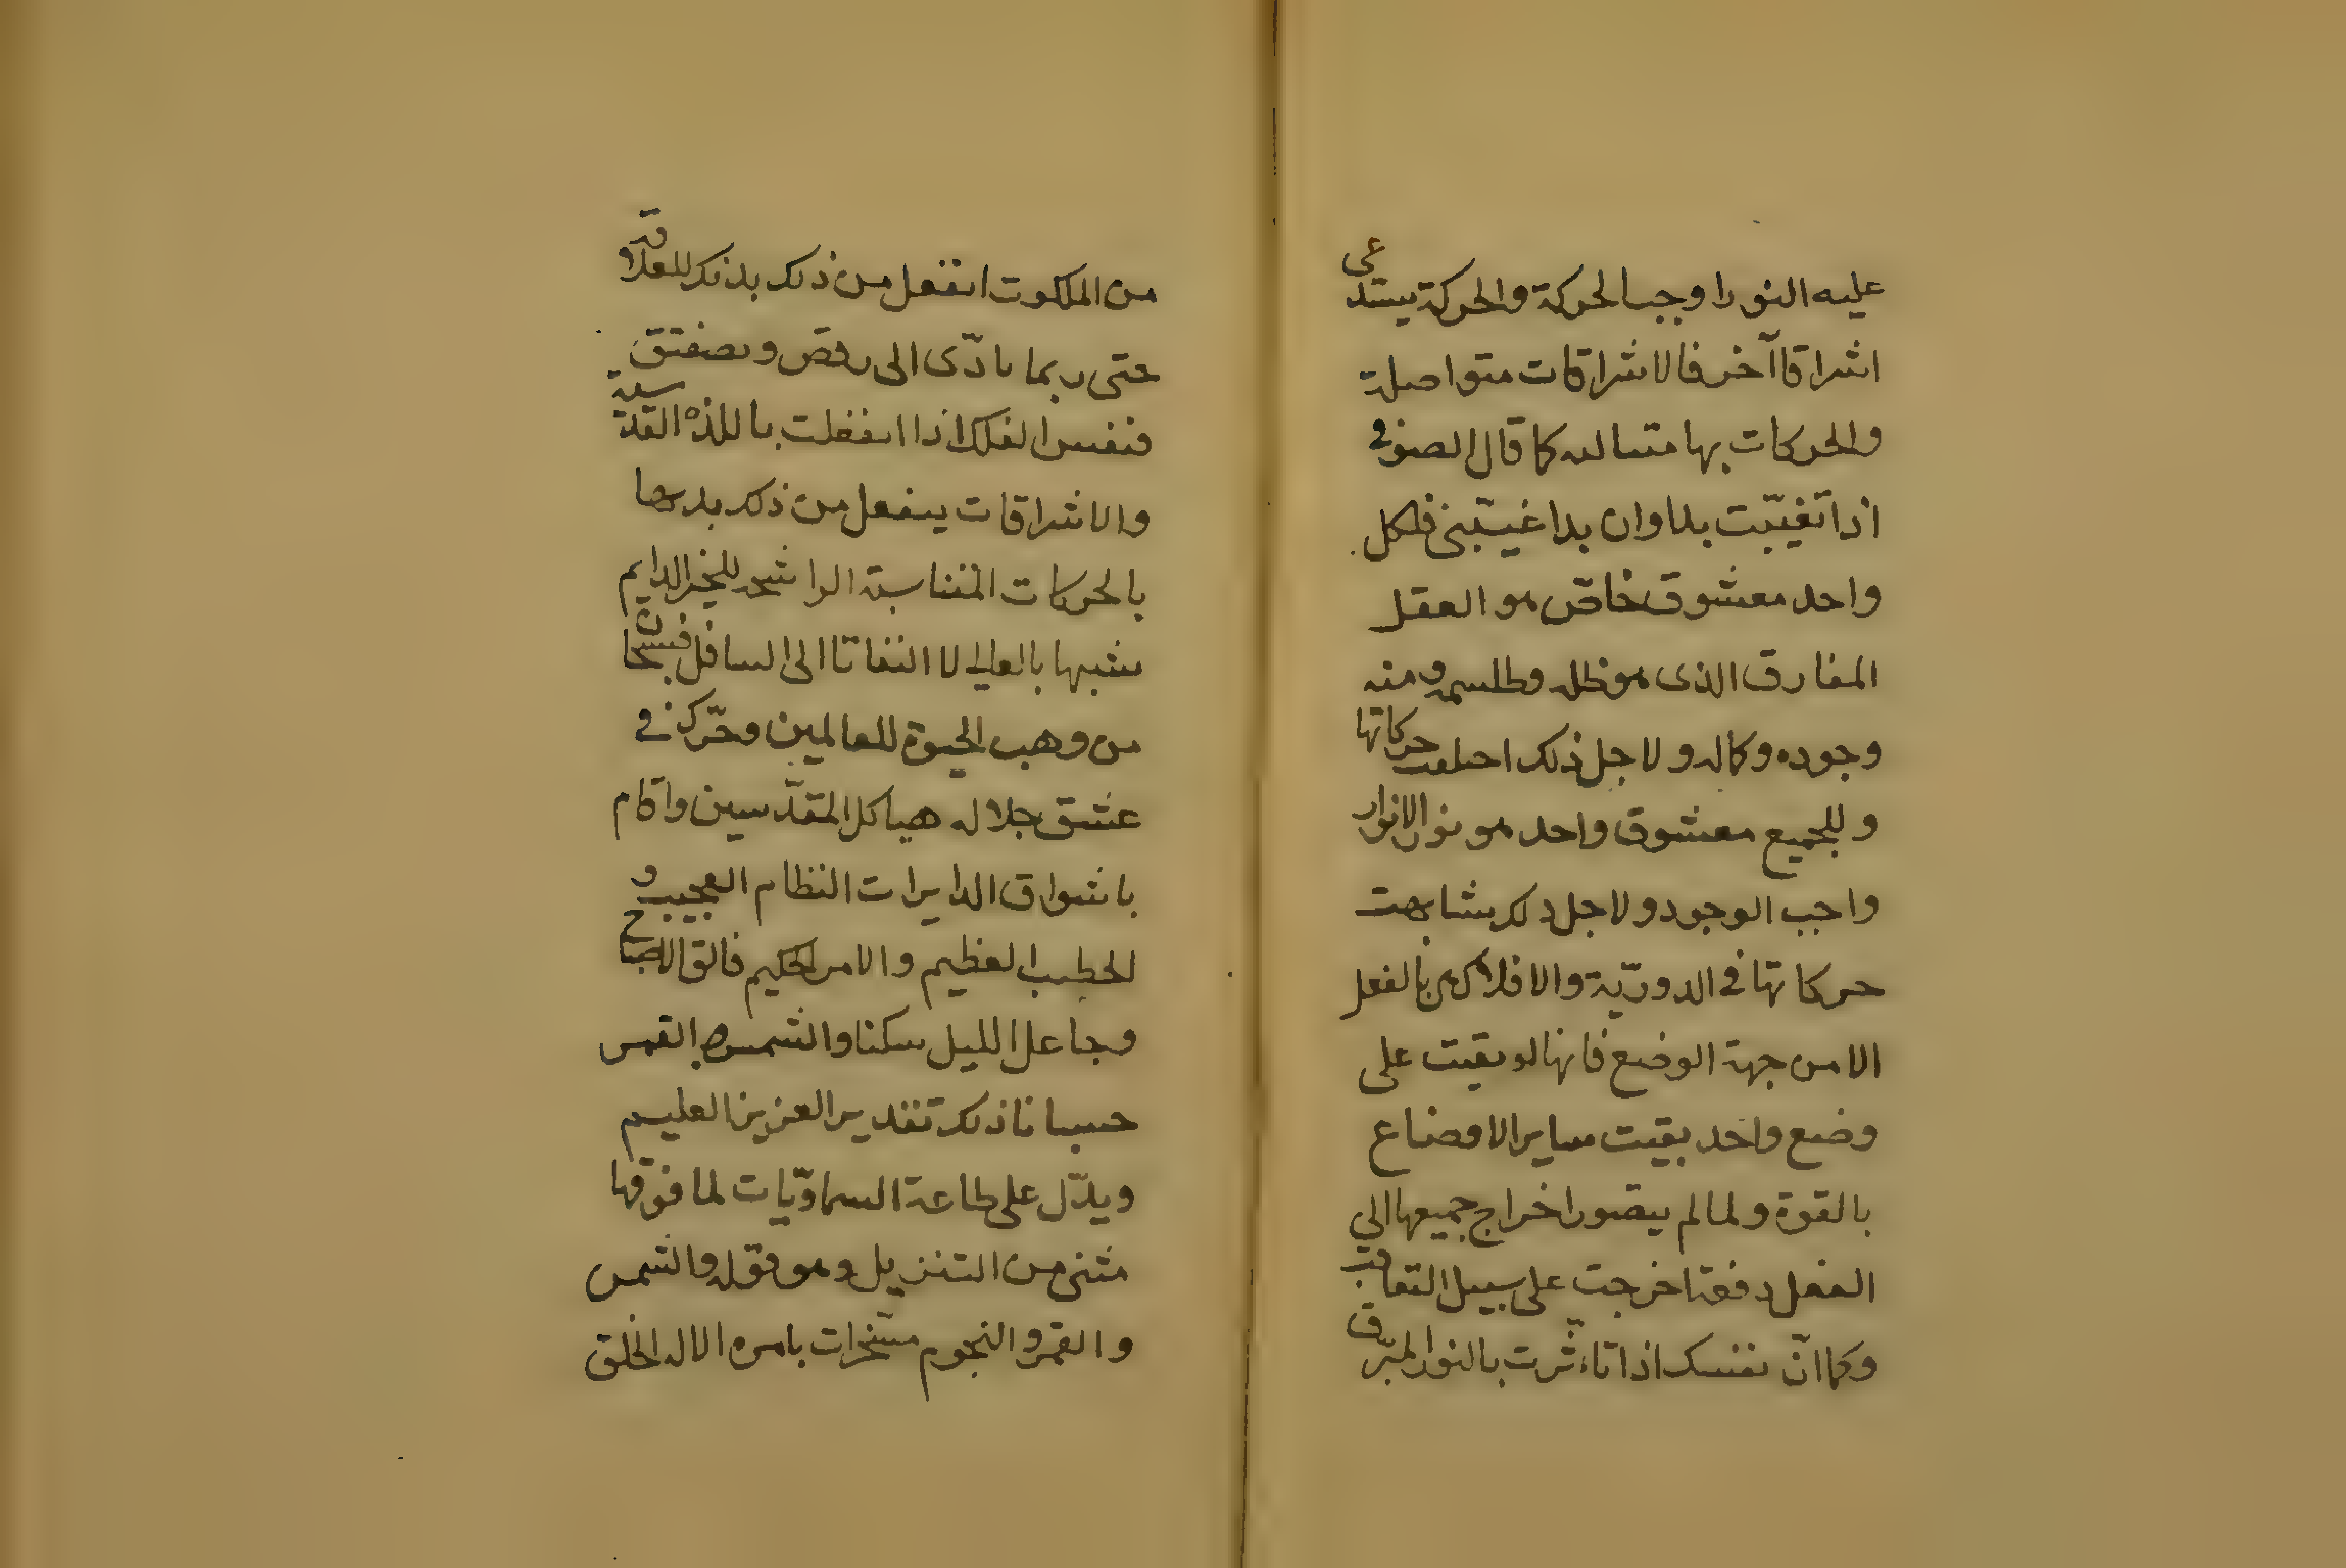 عليه النور اوجب الحركة والحركة يستدعى
اشراقا آخر فالاشراقات متواصلة
والحركات بها متساله كما قال الصوفى
اذا تغيّبت بدا وان بدا غيّبنى فلكل
واحد معشوق خاصّ هو العقل
المفارق الذى هو ظله وطلسمه ومنه
وجوده وكماله ولاجل ذلك احلفت حركاتها
وللجميع معشوق واحد هو نور الانوار
واجب الوجود ولاجل ذلك تشابهت
حركاتها فى الدوريّة والافلاك هى بالفعل
الا من جهة الوضع فانها لو بقيت على
وضع واحد بقيت ساير الاوضاع
بالقوة ولما لم يتصور اخراج جميعها الى
الفعل دفعة اخرجت على سبيل التعاقب
وكما انّ نفسك اذا تاءثّرت بالنور المبرّق
من الملكوت انفعل من ذلك بدنك للعلاقة
حتى ربما تادّى الى رقص وتصفيق
فنفس الفلك اذا انفعلت باللذة القدسية
والاشراقات ينفعل من ذلك بدنها
بالحركات المتناسبة الراشحة للخير الدايم
تشبها بالعالى لا التفاتا الى السافل فسبحان
من وهب الحيوة للعالمين وحرّك فى
عشق جلاله هياكل المقدّسين واقام
باشواق الدايرات النظام العجيب و
الخطب العظيم والامر الحكيم فالق الاصباح
وجاعل الليل سكنا والشمس والقمر
حسبانا ذلك تقدير العزيز العليم
ويدّل على طاعة السماويّات لما فوقها
مثنى من التنزيل وهو قوله والشمس
والقمر والنجوم مسّخرات بامره الا له الخلق